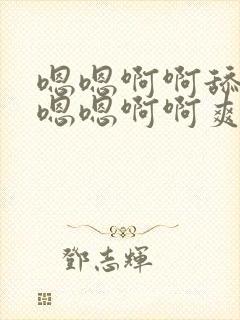 嗯嗯啊啊舔
嗯嗯啊啊爽
鄧志輝